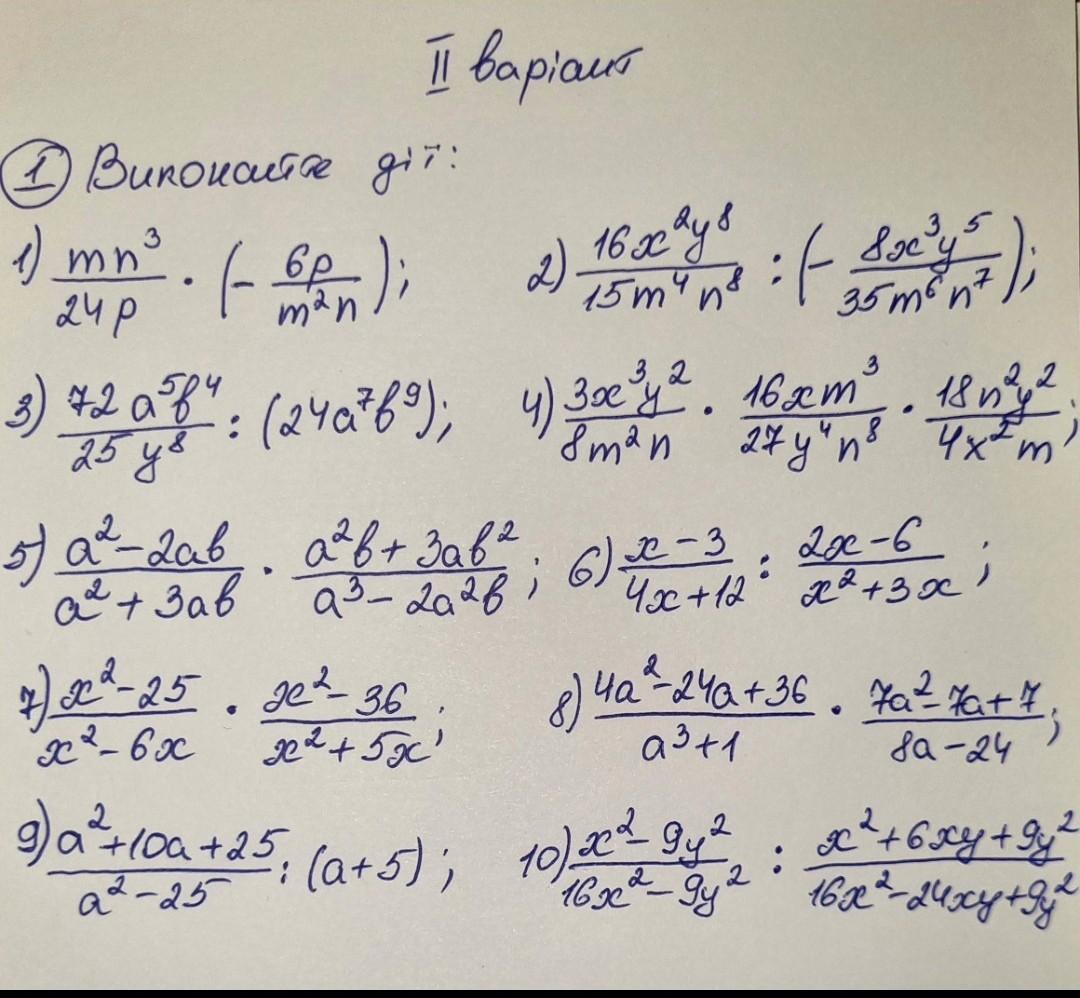 II варіант
① Виконайте дії:
1) \frac{mn^3}{24p} · (- \frac{6p}{m^2n}); 2) \frac{16x^2y^8}{15m^4n^8} : (- \frac{8x^3y^5}{35m^6n^7});
3) \frac{72a^5b^4}{25y^8} : (24a^7b^9); 4) \frac{3x^3y^2}{8m^2n} · \frac{16xm^3}{27y^4n^8} · \frac{18n^2y^2}{4x^2m};
5) \frac{a^2-2ab}{a^2+3ab} · \frac{a^2b+3ab^2}{a^3-2a^2b}; 6) \frac{x-3}{4x+12} : \frac{2x-6}{x^2+3x};
7) \frac{x^2-25}{x^2-6x} · \frac{x^2-36}{x^2+5x}; 8) \frac{4a^2-24a+36}{a^3+1} · \frac{7a^2-7a+7}{8a-24};
9) \frac{a^2+10a+25}{a^2-25} : (a+5); 10) \frac{x^2-9y^2}{16x^2-9y^2} : \frac{x^2+6xy+9y^2}{16x^2-24xy+9y^2}